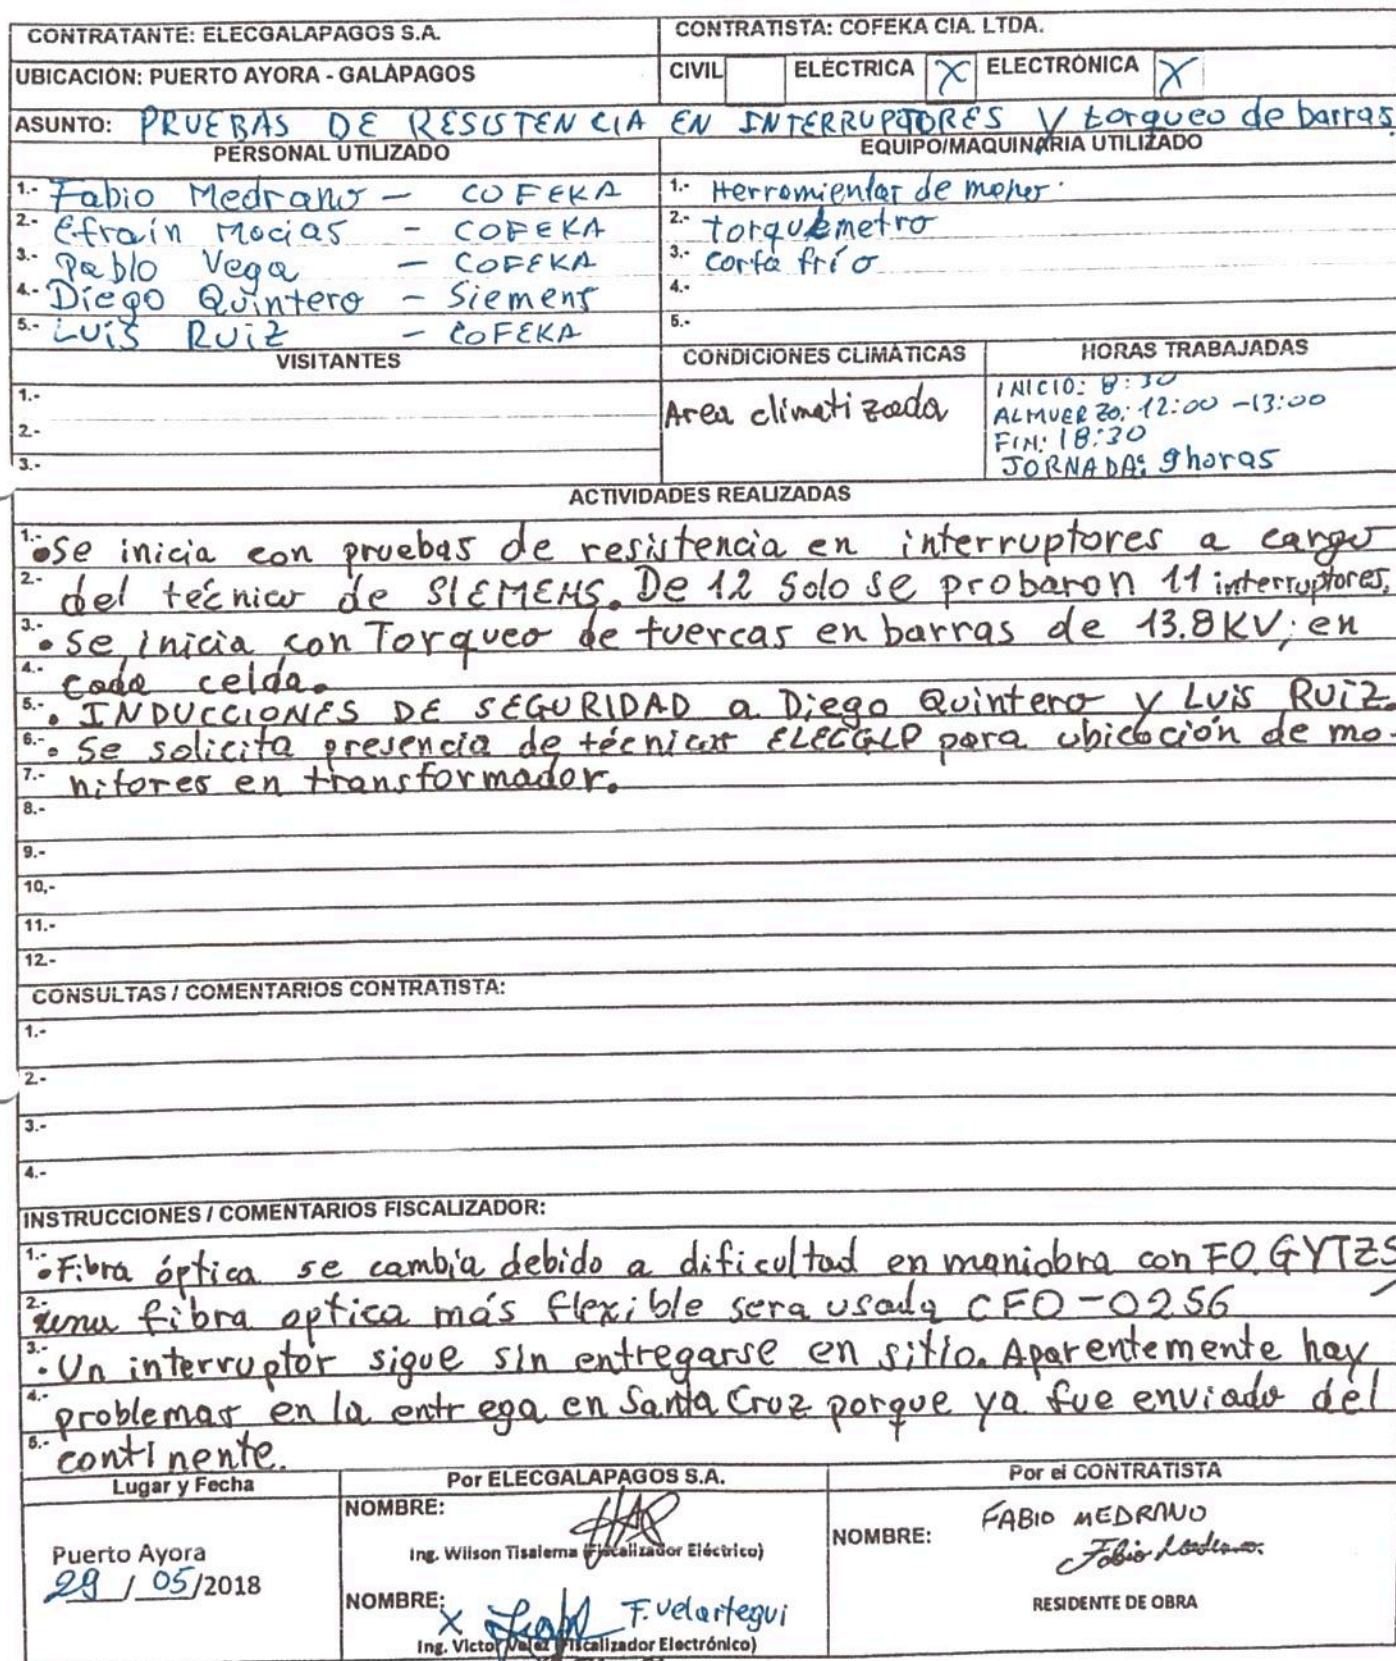 CONTRATANTE: ELECGALAPAGOS S.A.
CONTRATISTA: COFEKA CIA. LTDA.
UBICACIÓN: PUERTO AYORA - GALÁPAGOS
CIVIL ELÉCTRICA X ELECTRÓNICA X
ASUNTO: PRUEBAS DE RESISTENCIA EN INTERRUPTORES Y torqueo de barras
PERSONAL UTILIZADO
EQUIPO/MAQUINARIA UTILIZADO
1.- Fabio Medrano - COFEKA
2.- Efraín Macias - COFEKA
3.- Pablo Vega - COFEKA
4.- Diego Quintero - Siemens
5.- Luis Ruiz - COFEKA
1.- Herramientas de mano.
2.- torquemetro
3.- corta frío
4.-
5.-
VISITANTES
1.-
2.-
3.-
CONDICIONES CLIMÁTICAS
Area climatizada
HORAS TRABAJADAS
INICIO: 8:30
ALMUERZO: 12:00 -13:00
FIN: 18:30
JORNADA: 9horas
ACTIVIDADES REALIZADAS
1.- • Se inicia con pruebas de resistencia en interruptores a cargo
2.- del técnico de SIEMENS. De 12 solo se probaron 11 interruptores.
3.- • Se inicia con Torqueo de tuercas en barras de 13.8KV; en
4.- cada celda.
5.- • INDUCCIONES DE SEGURIDAD a Diego Quintero y Luis Ruiz.
6.- • Se solicita presencia de técnicos ELECGLP para ubicación de mo-
7.- nitores en transformador.
8.-
9.-
10,-
11.-
12.-
CONSULTAS / COMENTARIOS CONTRATISTA:
1.-
2.-
3.-
4.-
INSTRUCCIONES / COMENTARIOS FISCALIZADOR:
1.- • Fibra óptica se cambia debido a dificultad en maniobra con FO. GYTZS,
2.- una fibra optica más flexible sera usada CFO-0256
3.- • Un interruptor sigue sin entregarse en sitio. Aparentemente hay
4.- problemas en la entrega en Santa Cruz porque ya fue enviado del
5.- continente.
Lugar y Fecha
Puerto Ayora
29 / 05/2018
Por ELECGALAPAGOS S.A.
NOMBRE:
Ing. Wilson Tisalema (Fiscalizador Eléctrico)
NOMBRE:
X F. Velartegui
Ing. Victor Velez (Fiscalizador Electrónico)
Por el CONTRATISTA
NOMBRE: FABIO MEDRANO
Fabio Medrano.
RESIDENTE DE OBRA